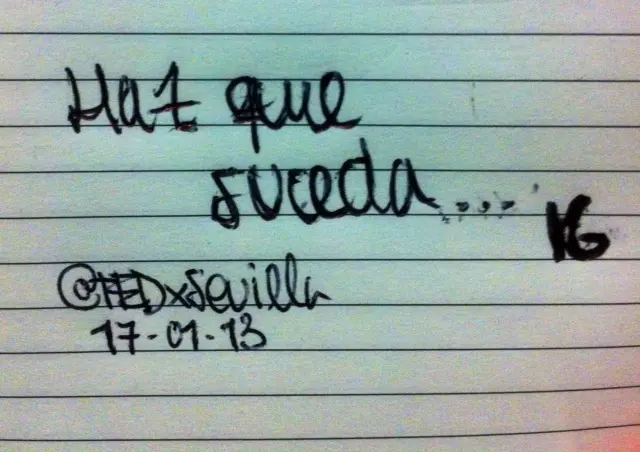 Haz que
suceda...
VG
@TEDxSevilla
17-01-13